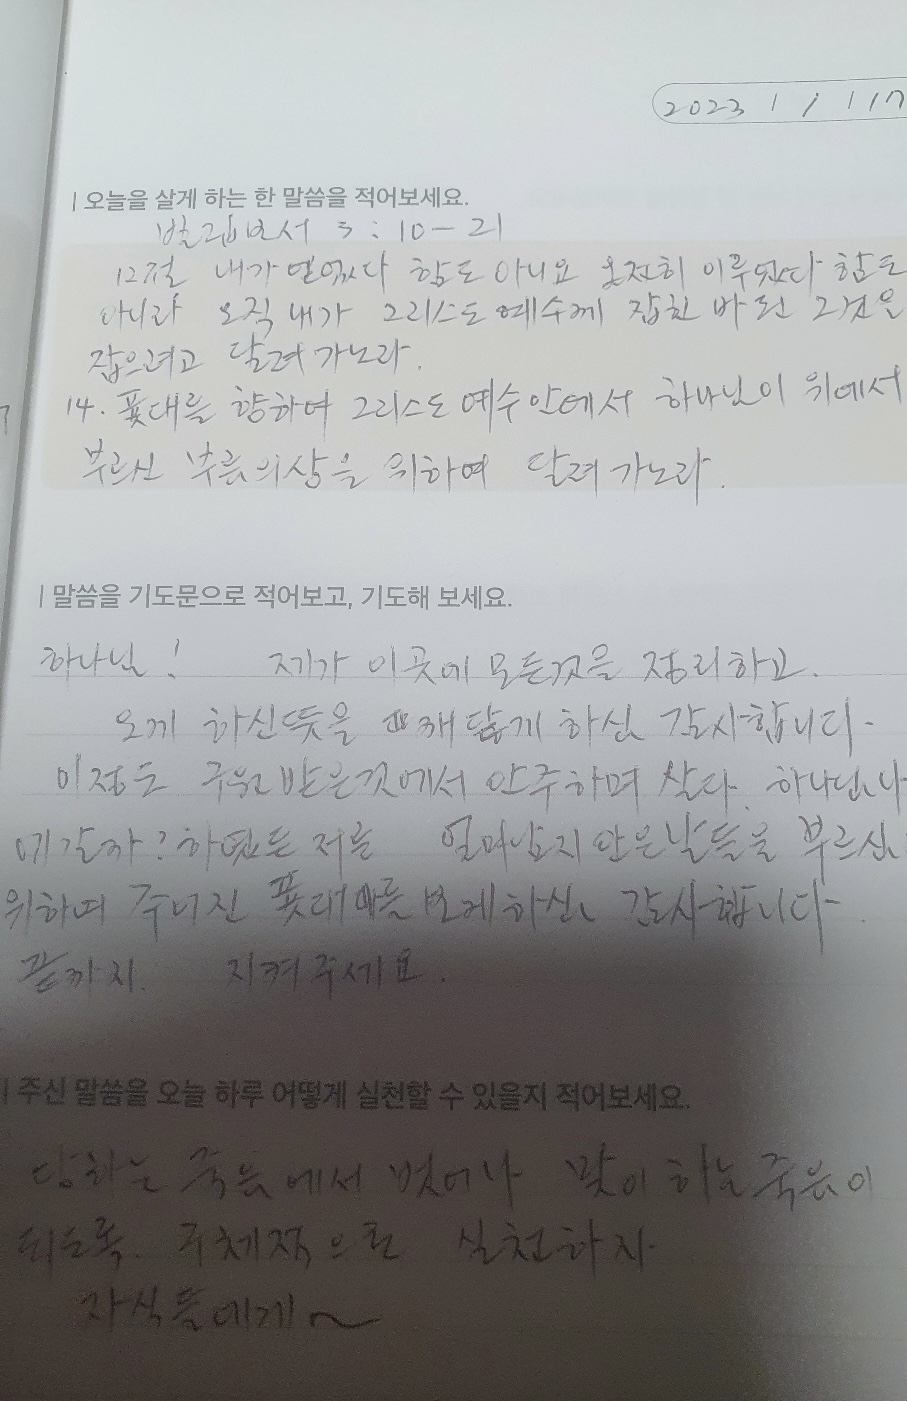 2023 1 / 117
| 오늘을 살게 하는 한 말씀을 적어보세요.
빌립보서 3 : 10 - 21
12절 내가 얻었다 함도 아니요 온전히 이루었다 함도
아니라 오직 내가 그리스도 예수께 잡힌 바 된 그것을
잡으려고 달려가노라.
14. 푯대를 향하여 그리스도 예수 안에서 하나님이 위에서
부르신 부름의 상을 위하여 달려가노라.
| 말씀을 기도문으로 적어보고, 기도해 보세요.
하나님! 제가 이곳에 모든것을 정리하고.
오게 하신뜻을 깨닫게 하신 감사합니다.
이정도 구원받은것에서 안주하며 살다. 하나님나
에갈까? 하였든 저를 얼마남지 안은날들을 부르신
위하여 주어진 푯대를 보게하신 감사합니다.
끝까지. 지켜주세요.
| 주신 말씀을 오늘 하루 어떻게 실천할 수 있을지 적어보세요.
당하는 죽음에서 벗어나 맞이하는 죽음이
되도록. 주체적으로 실천하자.
자식들에게~